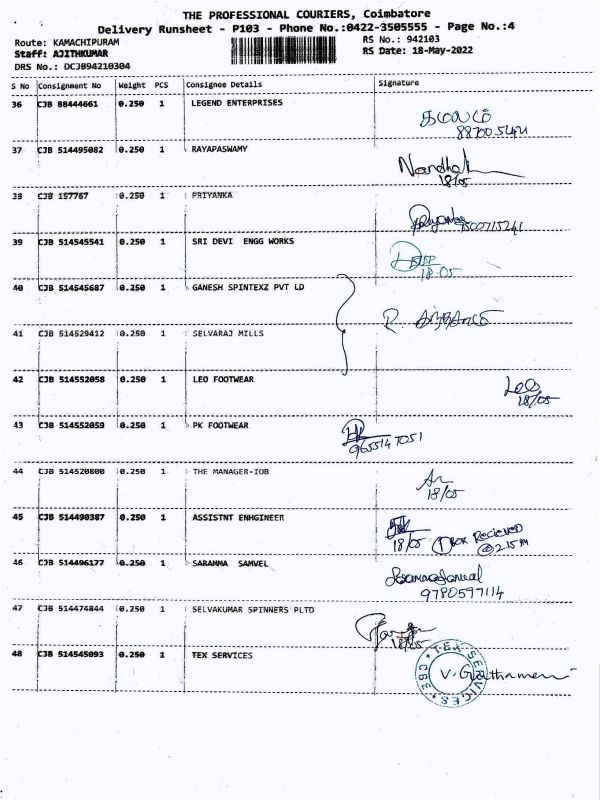 THE PROFESSIONAL COURIERS, Coimbatore
Delivery Runsheet - P103 - Phone No.:0422-3505555 - Page No.:4
Route: KAMACHIPURAM RS No.: 942103
Staff: AJITHKUMAR RS Date: 18-May-2022
DRS No.: DCJB94210304
S No Consignment No Weight PCS Consignee Details Signature
36 CJB 88444661 0.250 1 LEGEND ENTERPRISES
37 CJB 514495082 0.250 1 RAYAPASWAMY
Nandha
18/05
38 CJB 157767 0.250 1 PRIYANKA
Priyanka 9500715241
39 CJB 514545541 0.250 1 SRI DEVI ENGG WORKS
18.05
40 CJB 514545687 0.250 1 GANESH SPINTEXZ PVT LD
41 CJB 514529412 0.250 1 SELVARAJ MILLS
42 CJB 514552058 0.250 1 LEO FOOTWEAR
Leo
18/05
43 CJB 514552059 0.250 1 PK FOOTWEAR
9655147051
44 CJB 514520800 0.250 1 THE MANAGER-IOB
18/05
45 CJB 514490387 0.250 1 ASSISTNT ENHGINEER
18/05 1 BOX RECIEVED
@ 2.15 PM
46 CJB 514496177 0.250 1 SARAMMA SAMVEL
9790597114
47 CJB 514474844 0.250 1 SELVAKUMAR SPINNERS PLTD
18/05
48 CJB 514545093 0.250 1 TEX SERVICES
TEX SERVICES
CBE